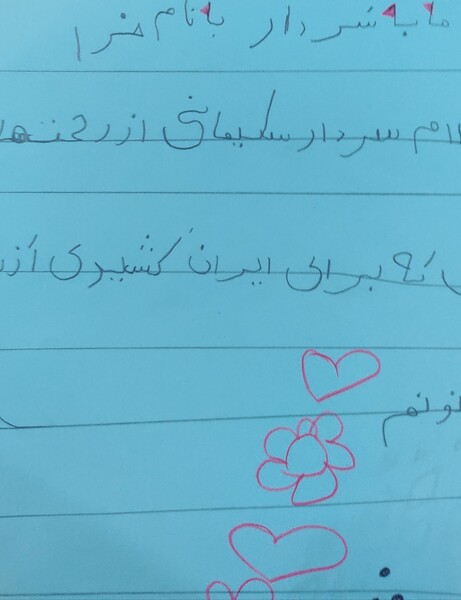 ما به سردار بنام خدا
لام سردار سلیمانی از زحمت‌ها
ی که برای ایران کشیدی از
نونم